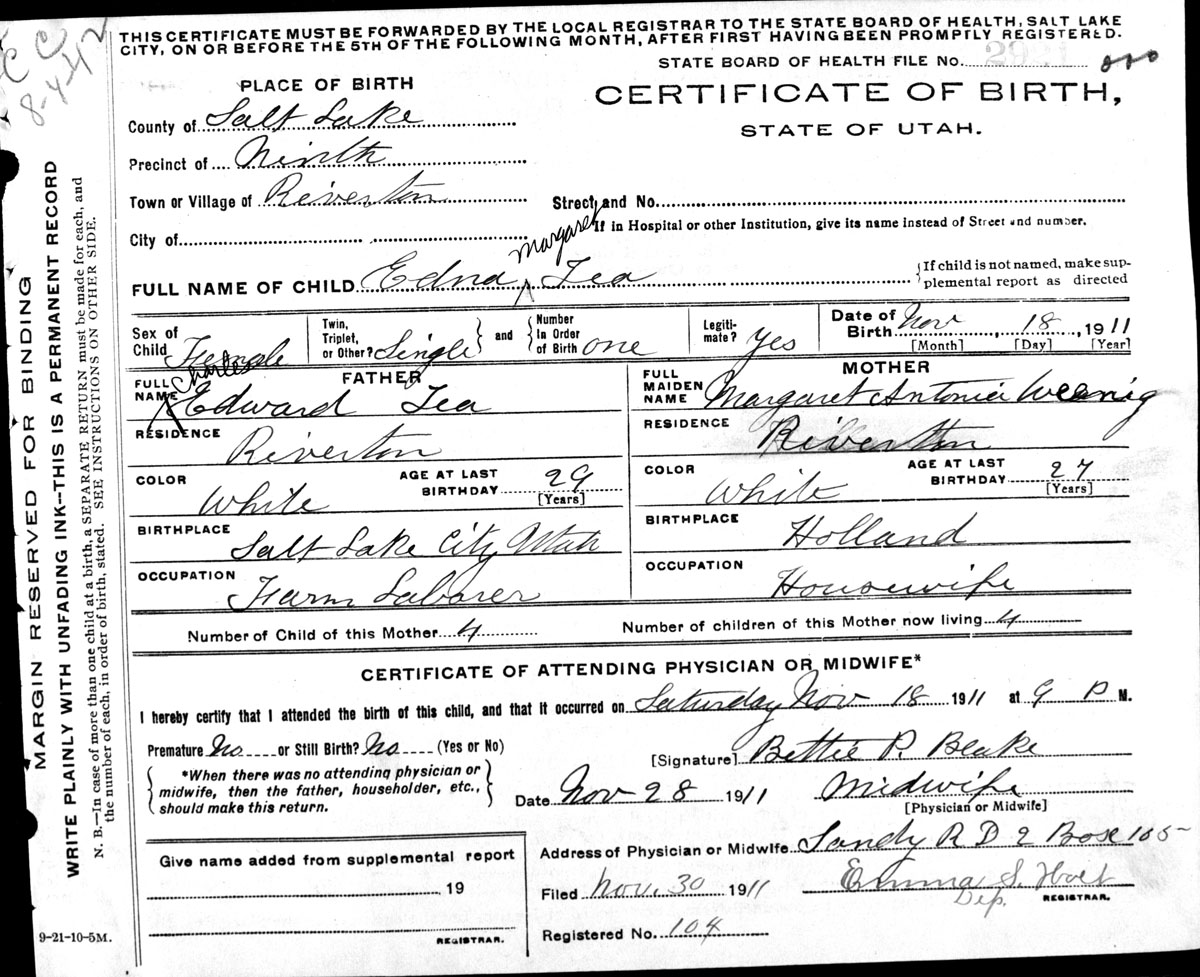 THIS CERTIFICATE MUST BE FORWARDED BY THE LOCAL REGISTRAR TO THE STATE BOARD OF HEALTH, SALT LAKE
CITY, ON OR BEFORE THE 5TH OF THE FOLLOWING MONTH, AFTER FIRST HAVING BEEN PROMPTLY REGISTERED.
C C
8-4-42
STATE BOARD OF HEALTH FILE No.
PLACE OF BIRTH
CERTIFICATE OF BIRTH,
STATE OF UTAH.
County of Salt Lake
Precinct of Ninth
Town or Village of Riverton
Street and No.
If in Hospital or other Institution, give its name instead of Street and number.
City of
Margaret
FULL NAME OF CHILD Edna Tea
If child is not named, make sup-
plemental report as directed
Sex of Child Female
Twin, Triplet, or Other? Single
and
Number In Order of Birth one
Legiti-mate? Yes
Date of Birth Nov 18, 1911
[Month] [Day] [Year]
FATHER
FULL NAME Charles Edward Tea
RESIDENCE Riverton
COLOR White
AGE AT LAST BIRTHDAY 29
[Years]
BIRTHPLACE Salt Lake City Utah
OCCUPATION Farm Laborer
MOTHER
FULL MAIDEN NAME Margaret Antonia Weenig
RESIDENCE Riverton
COLOR White
AGE AT LAST BIRTHDAY 27
[Years]
BIRTHPLACE Holland
OCCUPATION Housewife
Number of Child of this Mother 4
Number of children of this Mother now living 4
CERTIFICATE OF ATTENDING PHYSICIAN OR MIDWIFE*
I hereby certify that I attended the birth of this child, and that it occurred on Saturday Nov 18 1911 at 9 P M.
Premature No or Still Birth? No (Yes or No)
[Signature] Bettie P. Blake
*When there was no attending physician or
midwife, then the father, householder, etc.,
should make this return.
Date Nov 28 1911 Midwife
[Physician or Midwife]
Address of Physician or Midwife Sandy R D 2 Box 105
Give name added from supplemental report
19
REGISTRAR.
Filed Nov. 30 1911 Emma S.
Dep. REGISTRAR.
Registered No. 104
MARGIN RESERVED FOR BINDING
WRITE PLAINLY WITH UNFADING INK--THIS IS A PERMANENT RECORD
N. B.—In case of more than one child at a birth, a SEPARATE RETURN must be made for each, and
the number of each, in order of birth, stated. SEE INSTRUCTIONS ON OTHER SIDE.
9-21-10-5M.